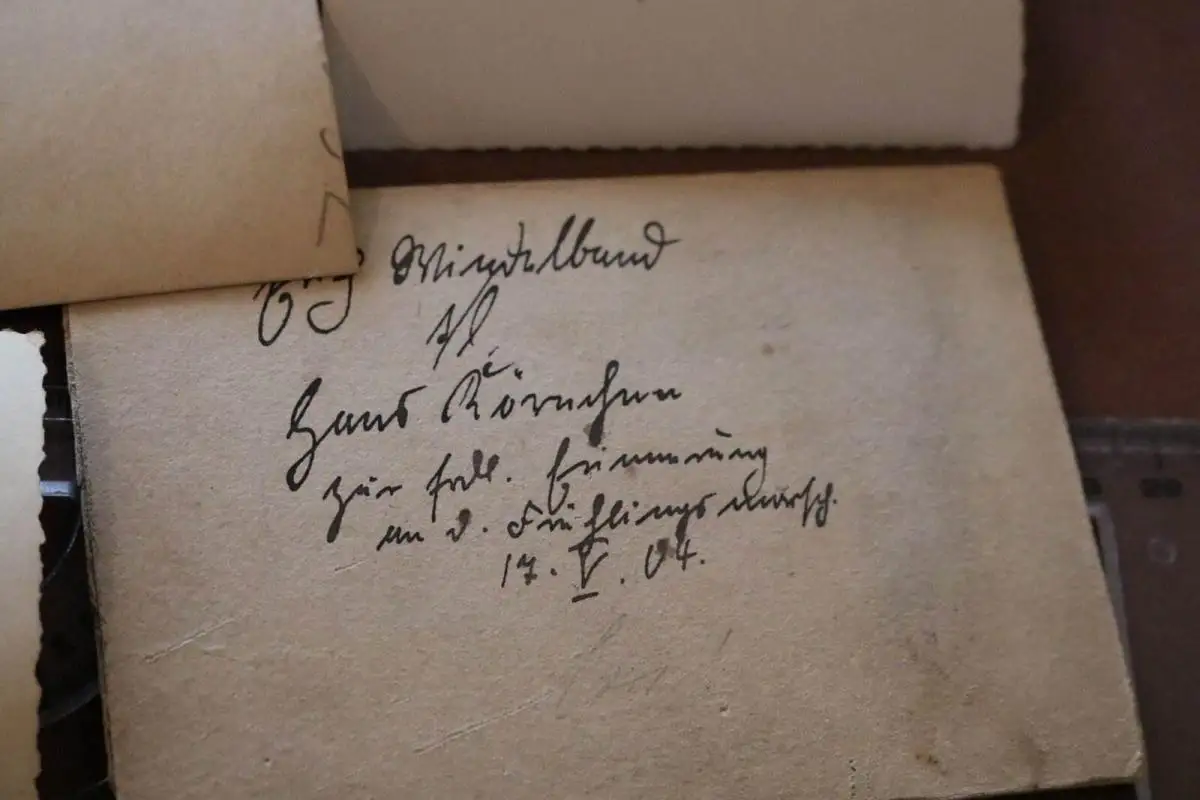 Windelband
Hans Körnchen
zur frdl. Erinnerung
an d. Frühlingsmarsch.
17. V. 04.